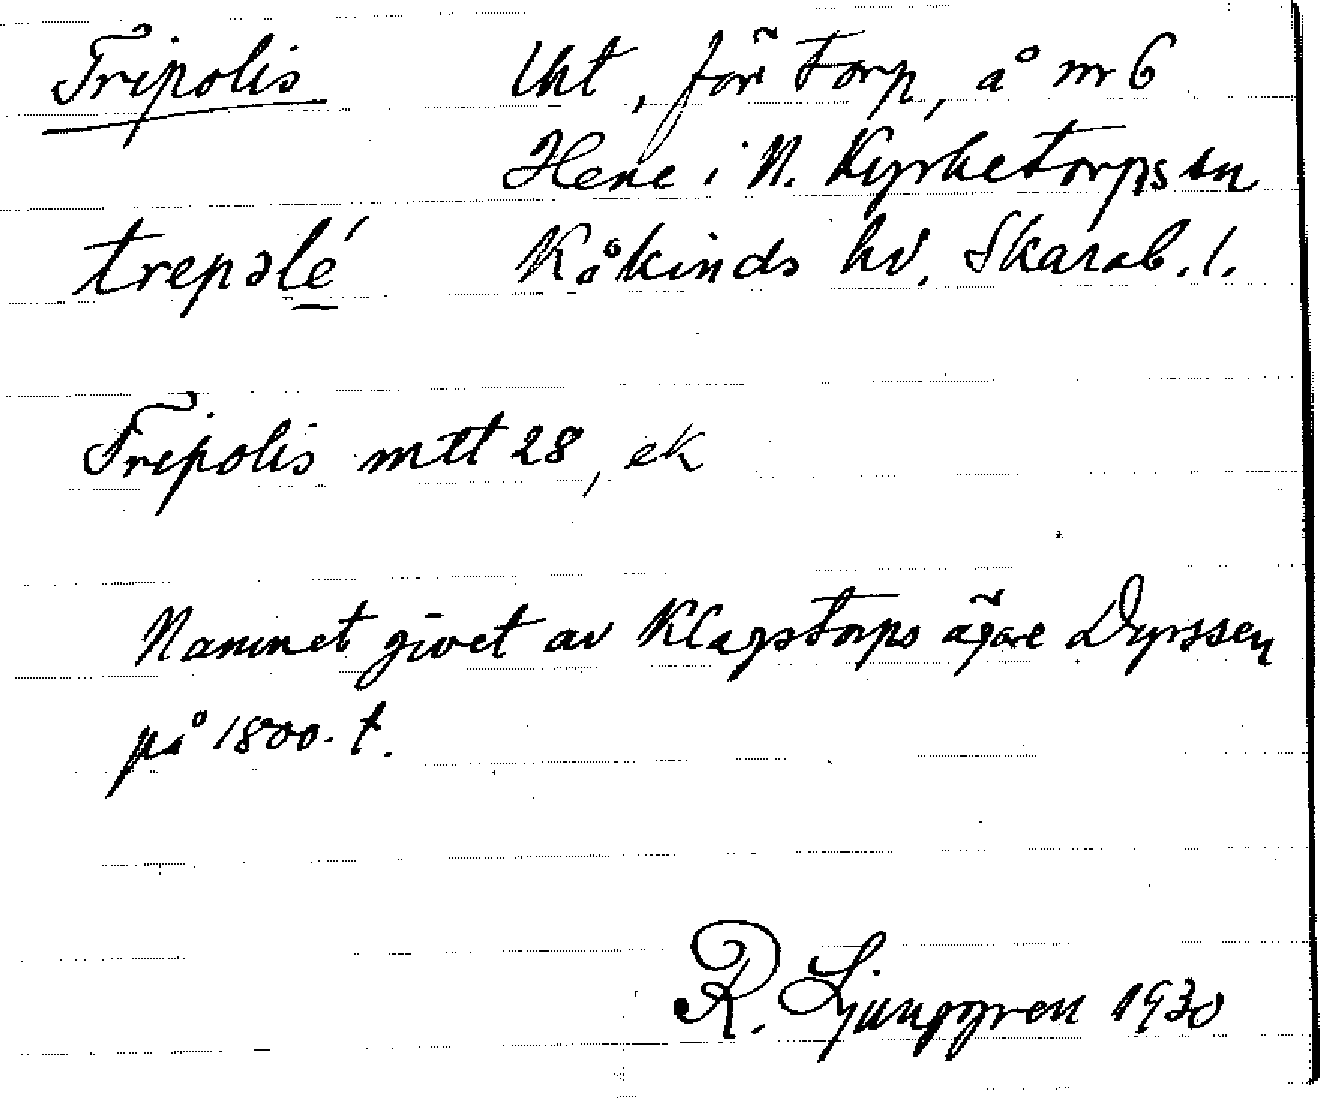 Tripolis
Ukt, förr torp, å nr 6
Hene i N. Kyrketorps sn
trepəlé
Kåkinds hd. Skarab. l.
Tripolis mtt 28, ek
Namnet givet av Klagstorps ägare Dyrssen
på 1800-t.
R. Ljunggren 1930